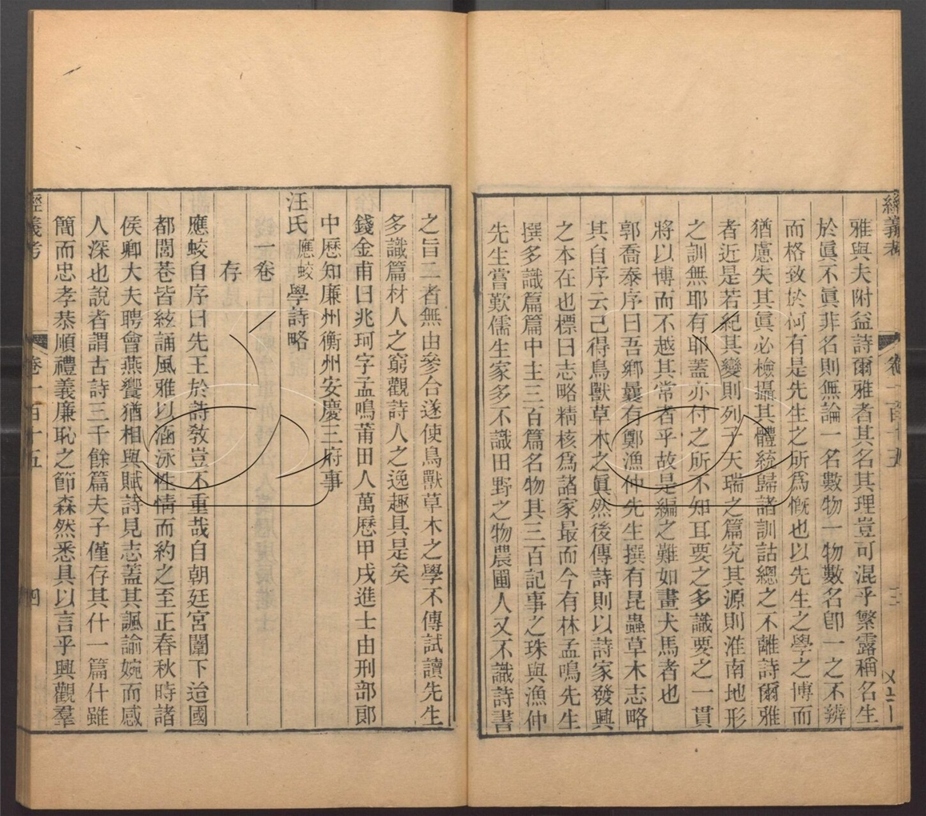 經義考
卷一百十五
雅與夫附益詩爾雅者其名其理豈可混乎繁露稱名生
於眞不眞非名則無論一名數物一物數名卽一之不辨
而格致於何有是先生之所爲慨也以先生之學之博而
猶慮失其眞必檢攝其體統歸諸訓詁總之不離詩爾雅
者近是若紀其變則列子天瑞之篇究其源則淮南地形
之訓無耶有耶蓋亦付之所不知耳要之多識要之一貫
將以博而不越其常者乎故是編之難如畫犬馬者也
郭喬泰序曰吾鄉曩有鄭漁仲先生撰有昆蟲草木志略
其自序云己得鳥獸草木之眞然後傳詩則以詩家發興
之本在也標曰志略精核爲諸家最而今有林孟鳴先生
撰多識篇篇中主三百篇名物其三百記事之珠與漁仲
先生嘗歎儒生家多不識田野之物農圃人又不識詩書
之旨二者無由參合遂使鳥獸草木之學不傳試讀先生
多識篇材人之窮觀詩人之逸趣具是矣
錢金甫曰兆珂字孟鳴莆田人萬歷甲戌進士由刑部郞
中歷知廉州衡州安慶三府事
汪氏應蛟學詩略
一卷
存
應蛟自序曰先王於詩敎豈不重哉自朝廷宮闈下迨國
都閭巷皆絃誦風雅以涵泳性情而約之至正春秋時諸
侯卿大夫聘會燕饗猶相與賦詩見志蓋其諷諭婉而感
人深也說者謂古詩三千餘篇夫子僅存其什一篇什雖
簡而忠孝恭順禮義廉恥之節森然悉具以言乎興觀羣
經義考
卷一百十五
四